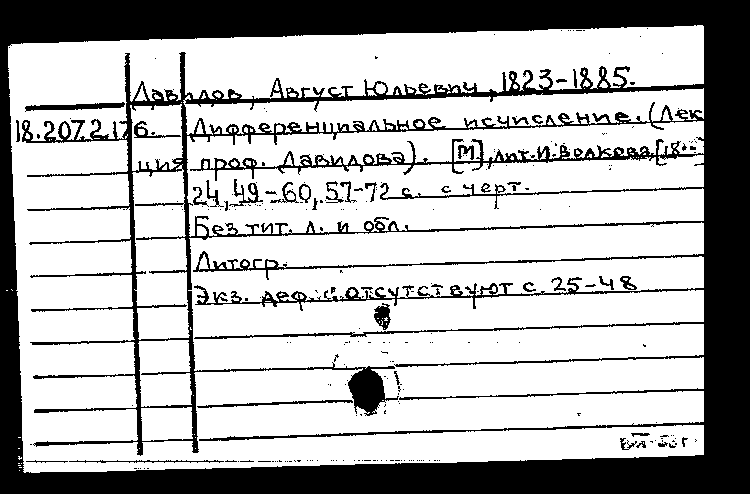 Давидов, Август Юльевич, 1823-1885.
18.207.2.176. Дифференциальное исчисление. (Лек
ция проф. Давидова). [М], лит. И. Волкова, [18--
24, 49-60, 57-72 с. с черт.
Без тит. л. и обл.
Литогр.
Экз. деф.: отсутствуют с. 25-48